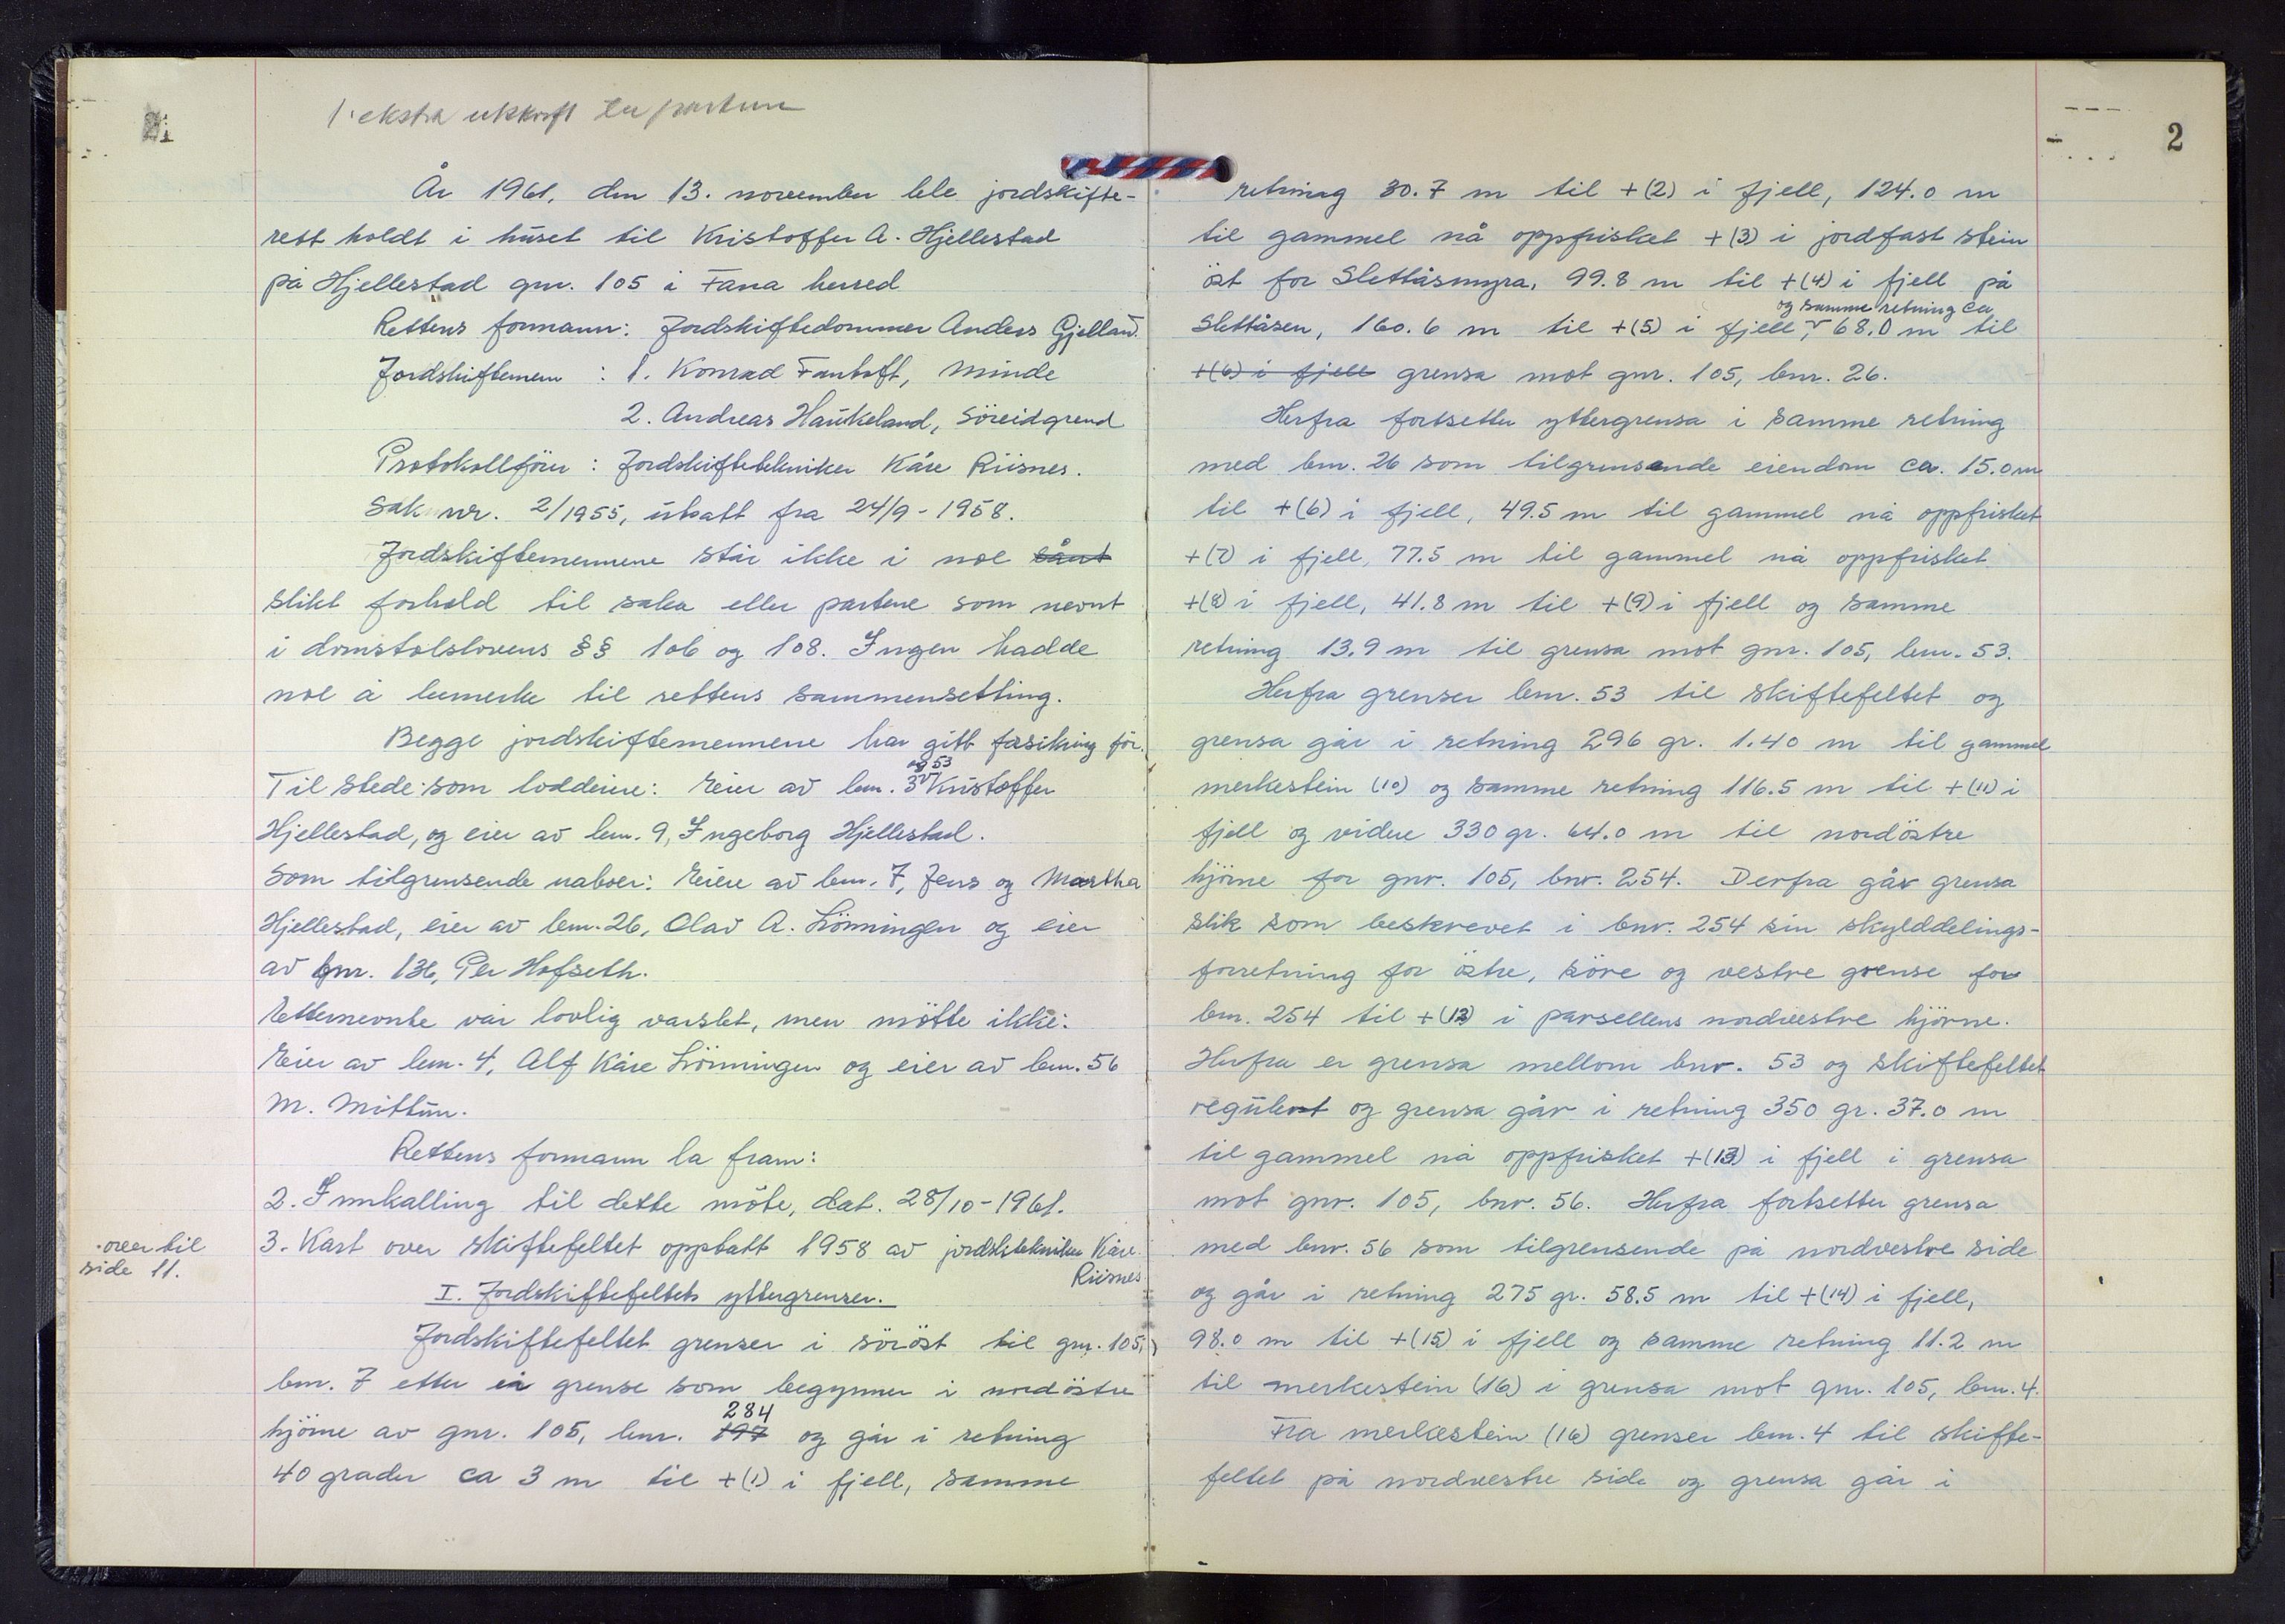 1 ekstra utskrift til partene
År 1961, den 13. november ble jordskifte-
rett holdt i huset til Kristoffer A. Hjellestad
på Hjellestad gnr. 105 i Fana herred
Rettens formann: Jordskiftedommer Anders Gjelland.
Jordskiftemenn : 1. Konrad Fantoft, Minde
2. Andreas Haukeland, Söreidgrend
Protokollförer : Jordskiftetekniker Kåre Riisnes.
Sak nr. 2/1955, utsatt fra 24/9-1958.
Jordskiftemennene står ikke i noe sånt
slikt forhold til saka eller partene som nevnt
i domstolslovens §§ 106 og 108. Ingen hadde
noe å bemerke til rettens sammensetting.
Begge jordskiftemennene har gitt forsikring för.
og 53
Til stede som loddeiere: Eier av bnr. 3 Kristoffer
Hjellestad, og eier av bnr. 9, Ingeborg Hjellestad.
Som tilgrensende naboer: Eiere av bnr. 7, Jens og Martha
Hjellestad, eier av bnr. 26, Olav A. Lönningen og eier
av bnr. 136, Per Hofseth.
Etternevnte var lovlig varslet, men mötte ikke:
Eier av bnr. 4, Alf Kåre Lönningen og eier av bnr. 56
M. Mittun.
Rettens formann la fram:
2. Innkalling til dette möte, dat. 28/10-1961.
over til
side 11.
3. Kart over skiftefeltet opptatt 1958 av jordsk.tekniker Kåre
Riisnes
I. Jordskiftefeltets yttergrenser.
Jordskiftefeltet grenser i söröst til gnr. 105,
bnr. 7 etter ei grense som begynner i nordöstre
284
hjörne av gnr. 105, bnr. 197 og går i retning
40 grader ca 3 m til +(1) i fjell, samme
2
retning 30.7 m til +(2) i fjell, 124.0 m
til gammel nå oppfrisket +(3) i jordfast stein
öst for Slettåsmyra, 99.8 m til +(4) i fjell på
og samme retning ca
Slettåsen, 160.6 m til +(5) i fjell, 68.0 m til
+(6) i fjell grensa mot gnr. 105, bnr. 26.
Herfra fortsetter yttergrensa i samme retning
med bnr. 26 som tilgrensende eiendom ca. 15.0 m
til +(6) i fjell, 49.5 m til gammel nå oppfrisket
+(7) i fjell, 77.5 m til gammel nå oppfrisket
+(8) i fjell, 41.8 m til +(9) i fjell og samme
retning 13.9 m til grensa mot gnr. 105, bnr. 53.
Herfra grenser bnr. 53 til skiftefeltet og
grensa går i retning 296 gr. 1.40 m til gammel
merkestein (10) og samme retning 116.5 m til +(11) i
fjell og videre 330 gr. 64.0 m til nordöstre
hjörne for gnr. 105, bnr. 254. Derfra går grensa
slik som beskrevet i bnr. 254 sin skylddelings-
forretning for östre, söre og vestre grense for
bnr. 254 til +(12) i parsellens nordvestre hjörne.
Herfra er grensa mellom bnr. 53 og skiftefeltet
regulert og grensa går i retning 350 gr. 37.0 m
til gammel nå oppfrisket +(13) i fjell i grensa
mot gnr. 105, bnr. 56. Herfra fortsetter grensa
med bnr. 56 som tilgrensende på nordvestre side
og går i retning 275 gr. 58.5 m til +(14) i fjell,
98.0 m til +(15) i fjell og samme retning 11.2 m
til merkestein (16) i grensa mot gnr. 105, bnr. 4.
Fra merkestein (16) grenser bnr. 4 til skifte-
feltet på nordvestre side og grensa går i